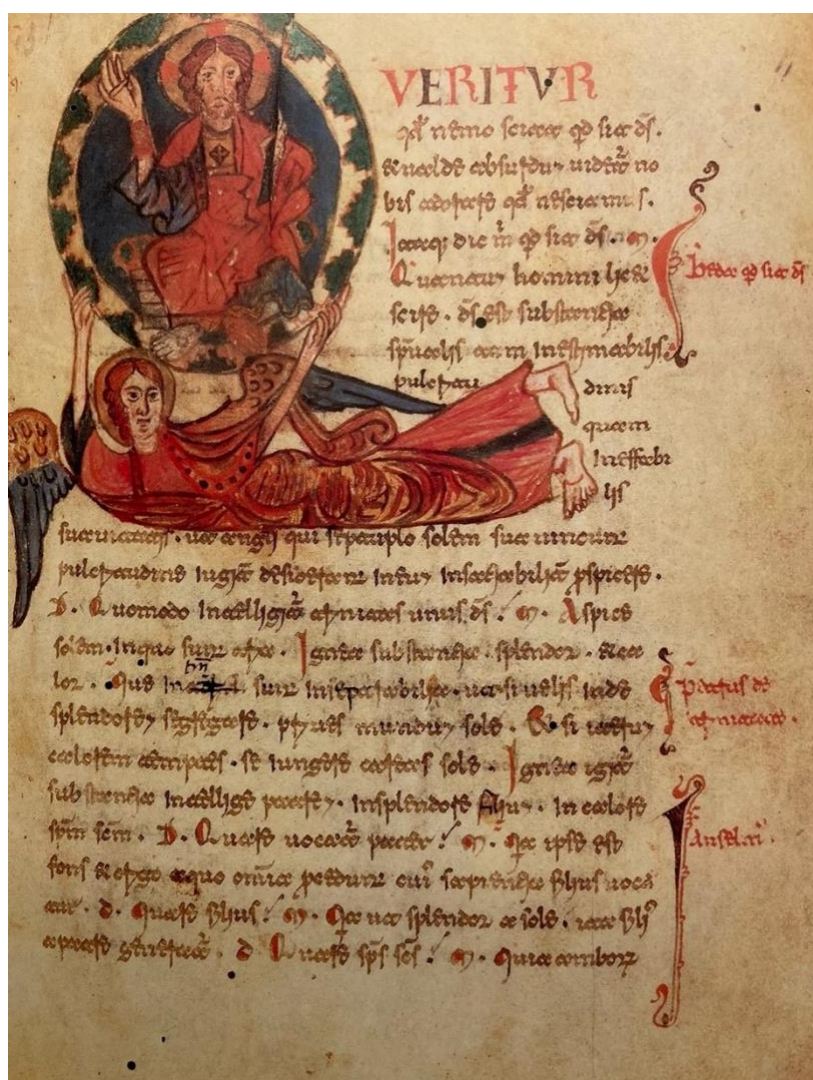 VERITVR
qđ nemo sciat qđ sit ds̄.
& ualde absurdū uidet̄ no
bis adorare qđ nesciamus.
Itaq; dic m̄ qđ sit ds̄. M.
Quantū homini licet
scire. ds̄ est substantia
sp̄ualis tam inestimabilis
pulchritu dinis
quam
ineffabi
lis
suauitatis. ut angli qui septuplo solem sua uincunt
pulchritudine iugit̄ desiderant in eū insatiabilit̄ pspicere.
D. Quomodo intelligit̄ trinitas unus ds̄? M. Aspice
solem. in quo sunt tria. Ignea substantia. splendor. & ca
lor. Que sunt inseparabilia. ut si uelis inde
splendorē segregare. priues mundū sole. & si iterū
calorem temptes seiungere careas sole. In ignea igit̄
substantia intellige patrē. in splendore filiū. in calore
sp̄m sc̄m. D. Quare uocat̄ pater? M. Quia ipse est
fons & origo a quo omnia procedunt cui' sapientia filius uoca
tur. D. Quare filius? M. Quia ut splendor a sole. ita filius
a patre generat̄. D. Quare sp̄s sc̄s? M. Quia amborum
Beda qđ sit ds̄
Petrus de
trinitate.
Anselmi.